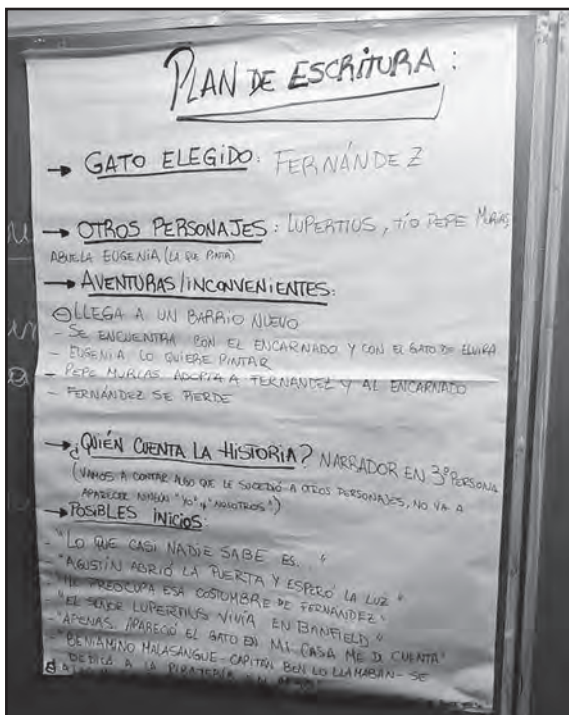 PLAN DE ESCRITURA:
→ GATO ELEGIDO: FERNÁNDEZ
→ OTROS PERSONAJES: LUPERTIUS, TÍO PEPE MURIAS,
ABUELA EUGENIA (LA QUE PINTA)
→ AVENTURAS/INCONVENIENTES:
LLEGA A UN BARRIO NUEVO
- SE ENCUENTRA CON EL ENCARNADO Y CON EL GATO DE ELVIRA
- EUGENIA LO QUIERE PINTAR
- PEPE MURIAS ADOPTA A FERNANDEZ Y AL ENCARNADO
- FERNÁNDEZ SE PIERDE
→ ¿QUIÉN CUENTA LA HISTORIA? NARRADOR EN 3º PERSONA
(VAMOS A CONTAR ALGO QUE LE SUCEDIÓ A OTROS PERSONAJES, NO VA A
APARECER NINGÚN "YO" y "NOSOTROS")
→ POSIBLES INICIOS:
- "LO QUE CASI NADIE SABE ES..."
- "AGUSTÍN ABRIÓ LA PUERTA Y ESPERÓ LA LUZ"
- "ME PREOCUPA ESA COSTUMBRE DE FERNÁNDEZ"
- "EL SEÑOR LUPERTIUS VIVÍA EN BANFIELD"
- "APENAS APARECIÓ EL GATO EN MI CASA ME DI CUENTA"
- "BENIAMINO MALASANGUE - CAPITÁN BEN LO LLAMABAN - SE
DEDICA A LA PIRATERÍA